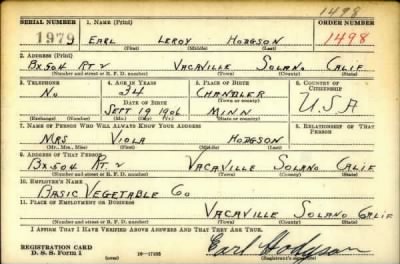 1498
SERIAL NUMBER 1. NAME (Print) ORDER NUMBER
1979 EARL LEROY HODGSON 1498
(First) (Middle) (Last)
2. ADDRESS (Print)
BX.504 RT 2 VACAVILLE SOLANO CALIF
(Number and street or R. F. D. number) (Town) (County) (State)
3. TELEPHONE 4. AGE IN YEARS 5. PLACE OF BIRTH 6. COUNTRY OF CITIZENSHIP
No 34 CHANDLER U.S.A
DATE OF BIRTH (Town or county)
SEPT 19 1906 MINN
(Exchange) (Number) (Mo.) (Day) (Yr.) (State or country)
7. NAME OF PERSON WHO WILL ALWAYS KNOW YOUR ADDRESS 8. RELATIONSHIP OF THAT PERSON
MRS VIOLA HODGSON
(Mr., Mrs., Miss) (First) (Middle) (Last)
9. ADDRESS OF THAT PERSON
BX.504 RT. 2 VACAVILLE SOLANO CALIF
(Number and street or R. F. D. number) (Town) (County) (State)
10. EMPLOYER'S NAME
BASIC VEGETABLE CO
11. PLACE OF EMPLOYMENT OR BUSINESS
VACAVILLE SOLANO CALIF
(Number and street or R. F. D. number) (Town) (County) (State)
I AFFIRM THAT I HAVE VERIFIED ABOVE ANSWERS AND THAT THEY ARE TRUE.
REGISTRATION CARD
D. S. S. Form 1 (over) Earl Hodgson
(Registrant's signature)